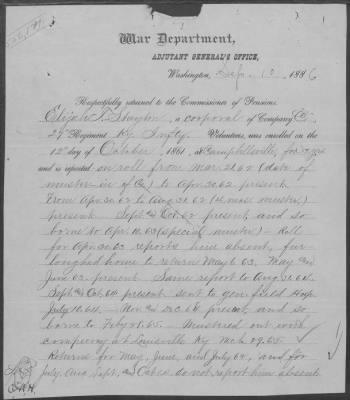 War Department,
ADJUTANT GENERAL'S OFFICE,
Washington, Sep 1886
Respectfully returned to the Commissioner of Pensions.
Elijah T. a corporal of Company
27 Regiment Ky Infty. Volunteers, was enrolled on the
12th day of October 1861, at Campbellsville, for 3 yrs
and is reported on roll from Mar 21.62 (date of
muster in of Co) to Apr 30.62 present
From Apr 30.62 to Aug 31.62 muster)
present Sept & Oct 62 present and so
borne to Apr 10.63 (special muster) - Roll
for Apr 30.63 reports him absent, fur-
loughed home to return May 6 63, May and
June 63 present Same report to Aug 31.64.
Sept & Oct 64 present sent to gen field Hosp
July 10.64 - Nov and Dec 64 present and so
borne to Feby 28.65. Mustered out with
company at Louisville Ky Mch 29.65.
Returns for May, June, and July 64, and for
July, Aug, Sept, and do not report him absent